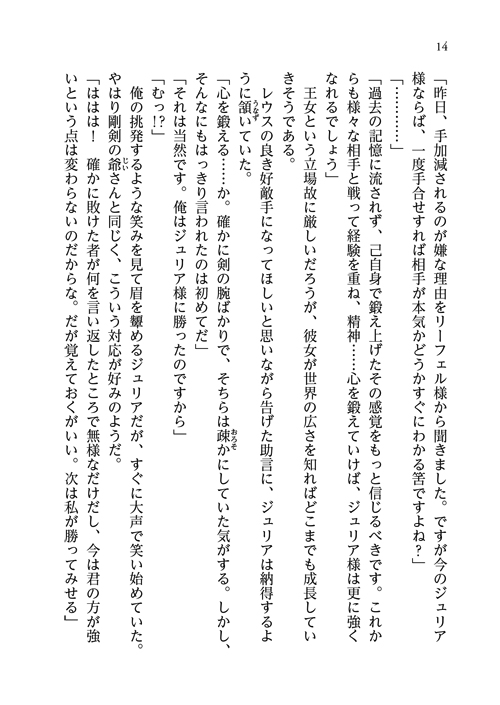 14
「昨日、手加減されるのが嫌な理由をリーフェル様から聞きました。ですが今のジュリア
様ならば、一度手合せすれば相手が本気かどうかすぐにわかる筈ですよね？」
「…………」
「過去の記憶に流されず、己自身で鍛え上げたその感覚をもっと信じるべきです。これか
らも様々な相手と戦って経験を重ね、精神……心を鍛えていけば、ジュリア様は更に強く
なれるでしょう」
王女という立場故に厳しいだろうが、彼女が世界の広さを知ればどこまでも成長してい
きそうである。
レウスの良き好敵手になってほしいと思いながら告げた助言に、ジュリアは納得するよ
うに頷うなずいていた。
「心を鍛える……か。確かに剣の腕ばかりで、そちらは疎おろそかにしていた気がする。しかし、
そんなにもはっきり言われたのは初めてだ」
「それは当然です。俺はジュリア様に勝ったのですから」
「むっ!?」
俺の挑発するような笑みを見て眉を顰めるジュリアだが、すぐに大声で笑い始めていた。
やはり剛剣の爺じいさんと同じく、こういう対応が好みのようだ。
「ははは！　確かに敗けた者が何を言い返したところで無様なだけだし、今は君の方が強
いという点は変わらないのだからな。だが覚えておくがいい。次は私が勝ってみせる」